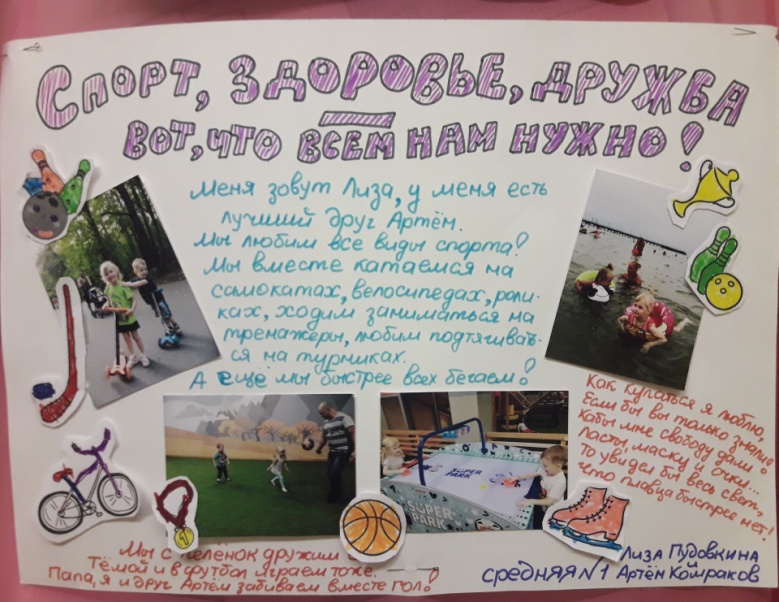 Спорт, здоровье, дружба
вот, что всем нам нужно!
Меня зовут Лиза, у меня есть
лучший друг Артём.
Мы любим все виды спорта!
Мы вместе катаемся на
самокатах, велосипедах, роли-
ках, ходим заниматься на
тренажеры, любим подтягивать-
ся на турниках.
А ещё мы быстрее всех бегаем!
Как купаться я люблю,
Если бы вы только знали
Кабы мне свободу дали
Ласты, маску и очки...
То увидал бы весь свет,
Что пловца быстрее нет!
SUPER
PARK
SUPER
PARK
1
Мы с пелёнок дружим
Тёмой и в футбол играем тоже.
Папа, я и друг Артём забиваем вместе гол!
Лиза Пудовкина
средняя №1 Артём Комраков